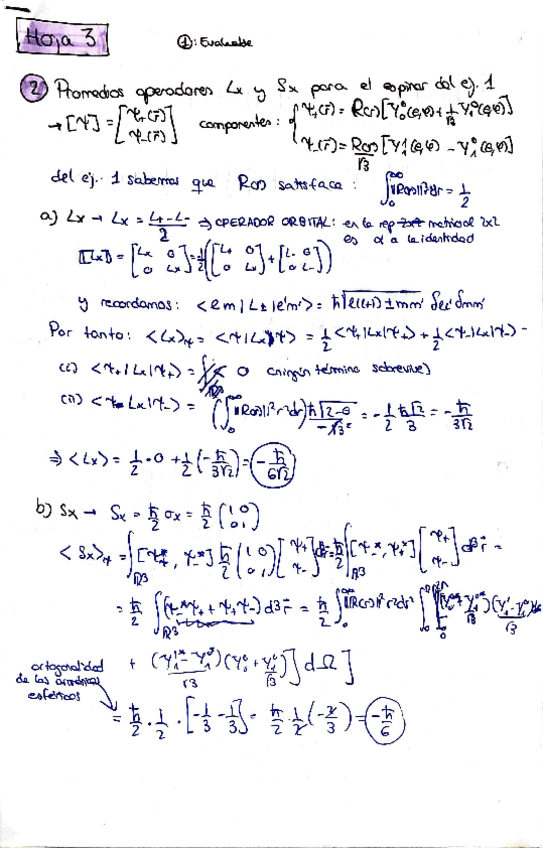 Hoja 3
①: Evaluable
② Promedios operadores Lx y Sx para el espinor del ej. 1
→ [Ψ] = [Ψ+(r̄) Ψ-(r̄)] componentes: { Ψ+(r̄) = R(r)[Y₀⁰(θ,φ) + 1/√3 Y₁⁰(θ,φ)]
Ψ-(r̄) = R(r)/√3 [Y₁¹(θ,φ) - Y₁⁰(θ,φ)]
del ej. 1 sabemos que R(r) satisface: ∫₀^∞ |R(r)|² r² dr = 1/2
a) Lx → Lx = L+-L-/2 ⇒ OPERADOR ORBITAL: en la rep matricial 2x2
es α a la identidad
[Lx] = [Lx 0 0 Lx] = 1/2 ([L+ 0 0 L+] + [L- 0 0 L-])
y recordamos: <lm|L±|l'm'> = ħ√l(l+1) ± mm' δll' δmm'
Por tanto: <Lx>Ψ = <Ψ|Lx|Ψ> = 1/2 <Ψ+|Lx|Ψ+> + 1/2 <Ψ-|Lx|Ψ-> -
(i) <Ψ+|Lx|Ψ+> = 0 (ningún término sobrevive)
(ii) <Ψ-|Lx|Ψ-> = (∫₀^∞ |R(r)|² r² dr) ħ√2-0/-√3² = -1/2 ħ√2/3 = -ħ/3√2
⇒ <Lx> = 1/2 · 0 + 1/2 (-ħ/3√2) = -ħ/6√2
b) Sx → Sx = ħ/2 σx = ħ/2 (1 0 0 1)
<Sx>Ψ = ∫R3 [Ψ+*, Ψ-*] ħ/2 (1 0 0 1) [Ψ+ Ψ-] d3r̄ = ħ/2 ∫R3 [Ψ-*, Ψ+*] [Ψ+ Ψ-] d3r̄ =
= ħ/2 ∫R3 (Ψ-*Ψ+ + Ψ+Ψ-) d3r̄ = ħ/2 ∫₀^∞ |R(r)|² r² dr² ∫₀ ∫₀^2π [(Y₀⁰* + Y₁⁰*/√3)(Y₁¹-Y₁⁰)/√3
+ (Y₁¹* - Y₁⁰*)/√3 (Y₀⁰ + Y₁⁰/√3)] dΩ ]
ortogonalidad
de los armónicos
esféricos
= ħ/2 · 1/2 · [-1/3 - 1/3] = ħ/2 · 1/2 (-2/3) = -ħ/6